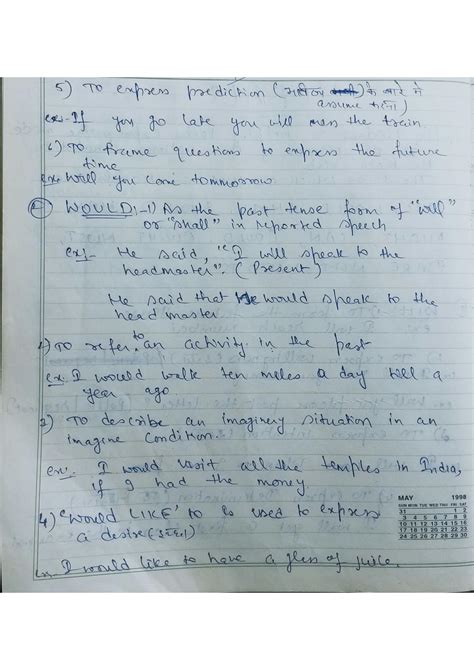 5) To express prediction (भविष्य के बारे में
assume करना)
ex:- If you go late you will miss the train
6) To frame questions to express the future
time
ex:- Will you come tommorrow
WOULD:- 1) As the past tense form of "will"
or "shall" in reported speech
ex:- He said, "I will speak to the
headmaster". (Present)
He said that He would speak to the
head master
2) To refer to an activity in the past
ex: I would walk ten miles a day till a
year ago
3) To describe an imaginery situation in an
imagine condition.
ex:. I would visit all the temples in India,
if I had the money
4) 'Would LIKE' to is used to express
a desire (इच्छा)
ex. I would like to have a glass of juice.
MAY 1998
SUN MON TUE WED THU FRI SAT
31 1 2
3 4 5 6 7 8 9
10 11 12 13 14 15 16
17 18 19 20 21 22 23
24 25 26 27 28 29 30